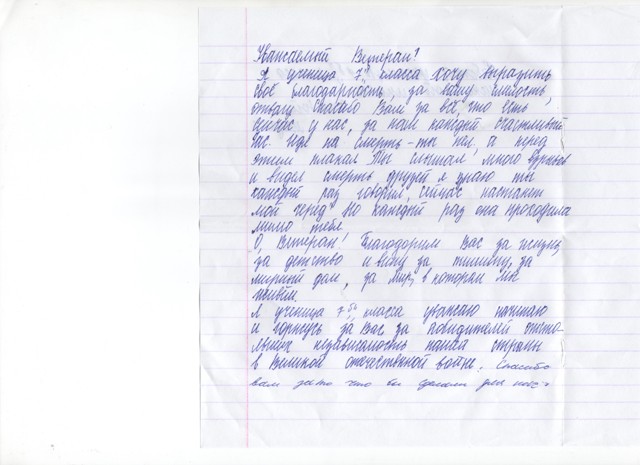 Уважаемый Ветеран!
Я ученица 7 класса хочу выразить
своё благодарность, за вашу смелость,
отвагу Спасибо Вам за всё, что есть
сейчас у нас, за нам каждый счастливый
час. Идя на смерть - ты пел, а перед
этим плакал Ты слышал много взрывов
и видел смерть друзей я знаю ты
каждый раз говорил, сейчас настанет
мой черёд Но каждый раз она проходила
мимо тебя.
О, Ветеран! Благодорим Вас за жизнь,
за детство и весну за тишину, за
мирный дом, за мир, в котором мы
живём.
Я ученица 7 класса уважаю почитаю
и горжусь за Вас за победителей отсто-
явших независимость нашей страны
в Великой отечественной войне. Спасибо
вам за то что вы сделали для нас